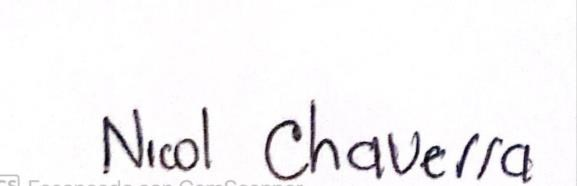 Nicol Chaverra
CS Escaneado con CamScanner